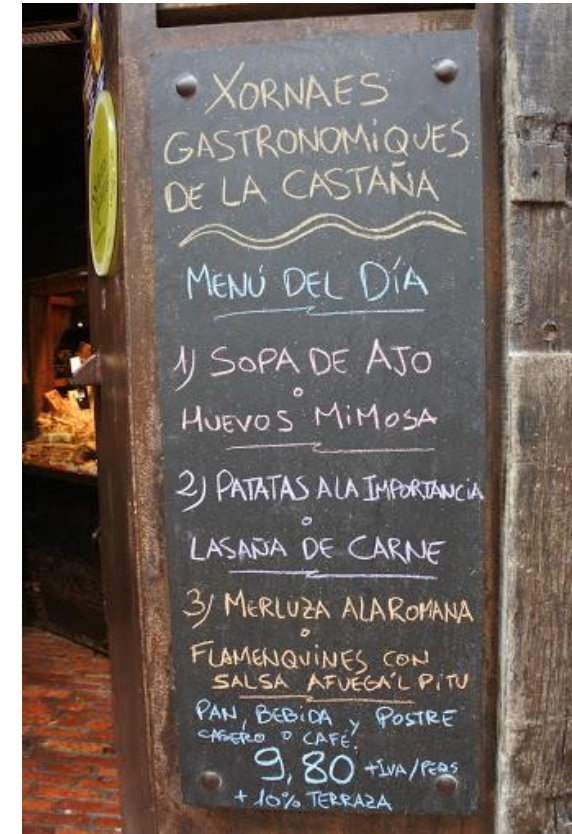 XORNAES
GASTRONOMIQUES
DE LA CASTAÑA
MENÚ DEL DÍA
1) SOPA DE AJO
o
HUEVOS MIMOSA
2) PATATAS A LA IMPORTANCIA
o
LASAÑA DE CARNE
3) MERLUZA A LA ROMANA
o
FLAMENQUINES CON
SALSA AFUEGA'L PITU
PAN, BEBIDA Y POSTRE
CASERO O CAFÉ.
9,80 +IVA/PERS
+ 10% TERRAZA